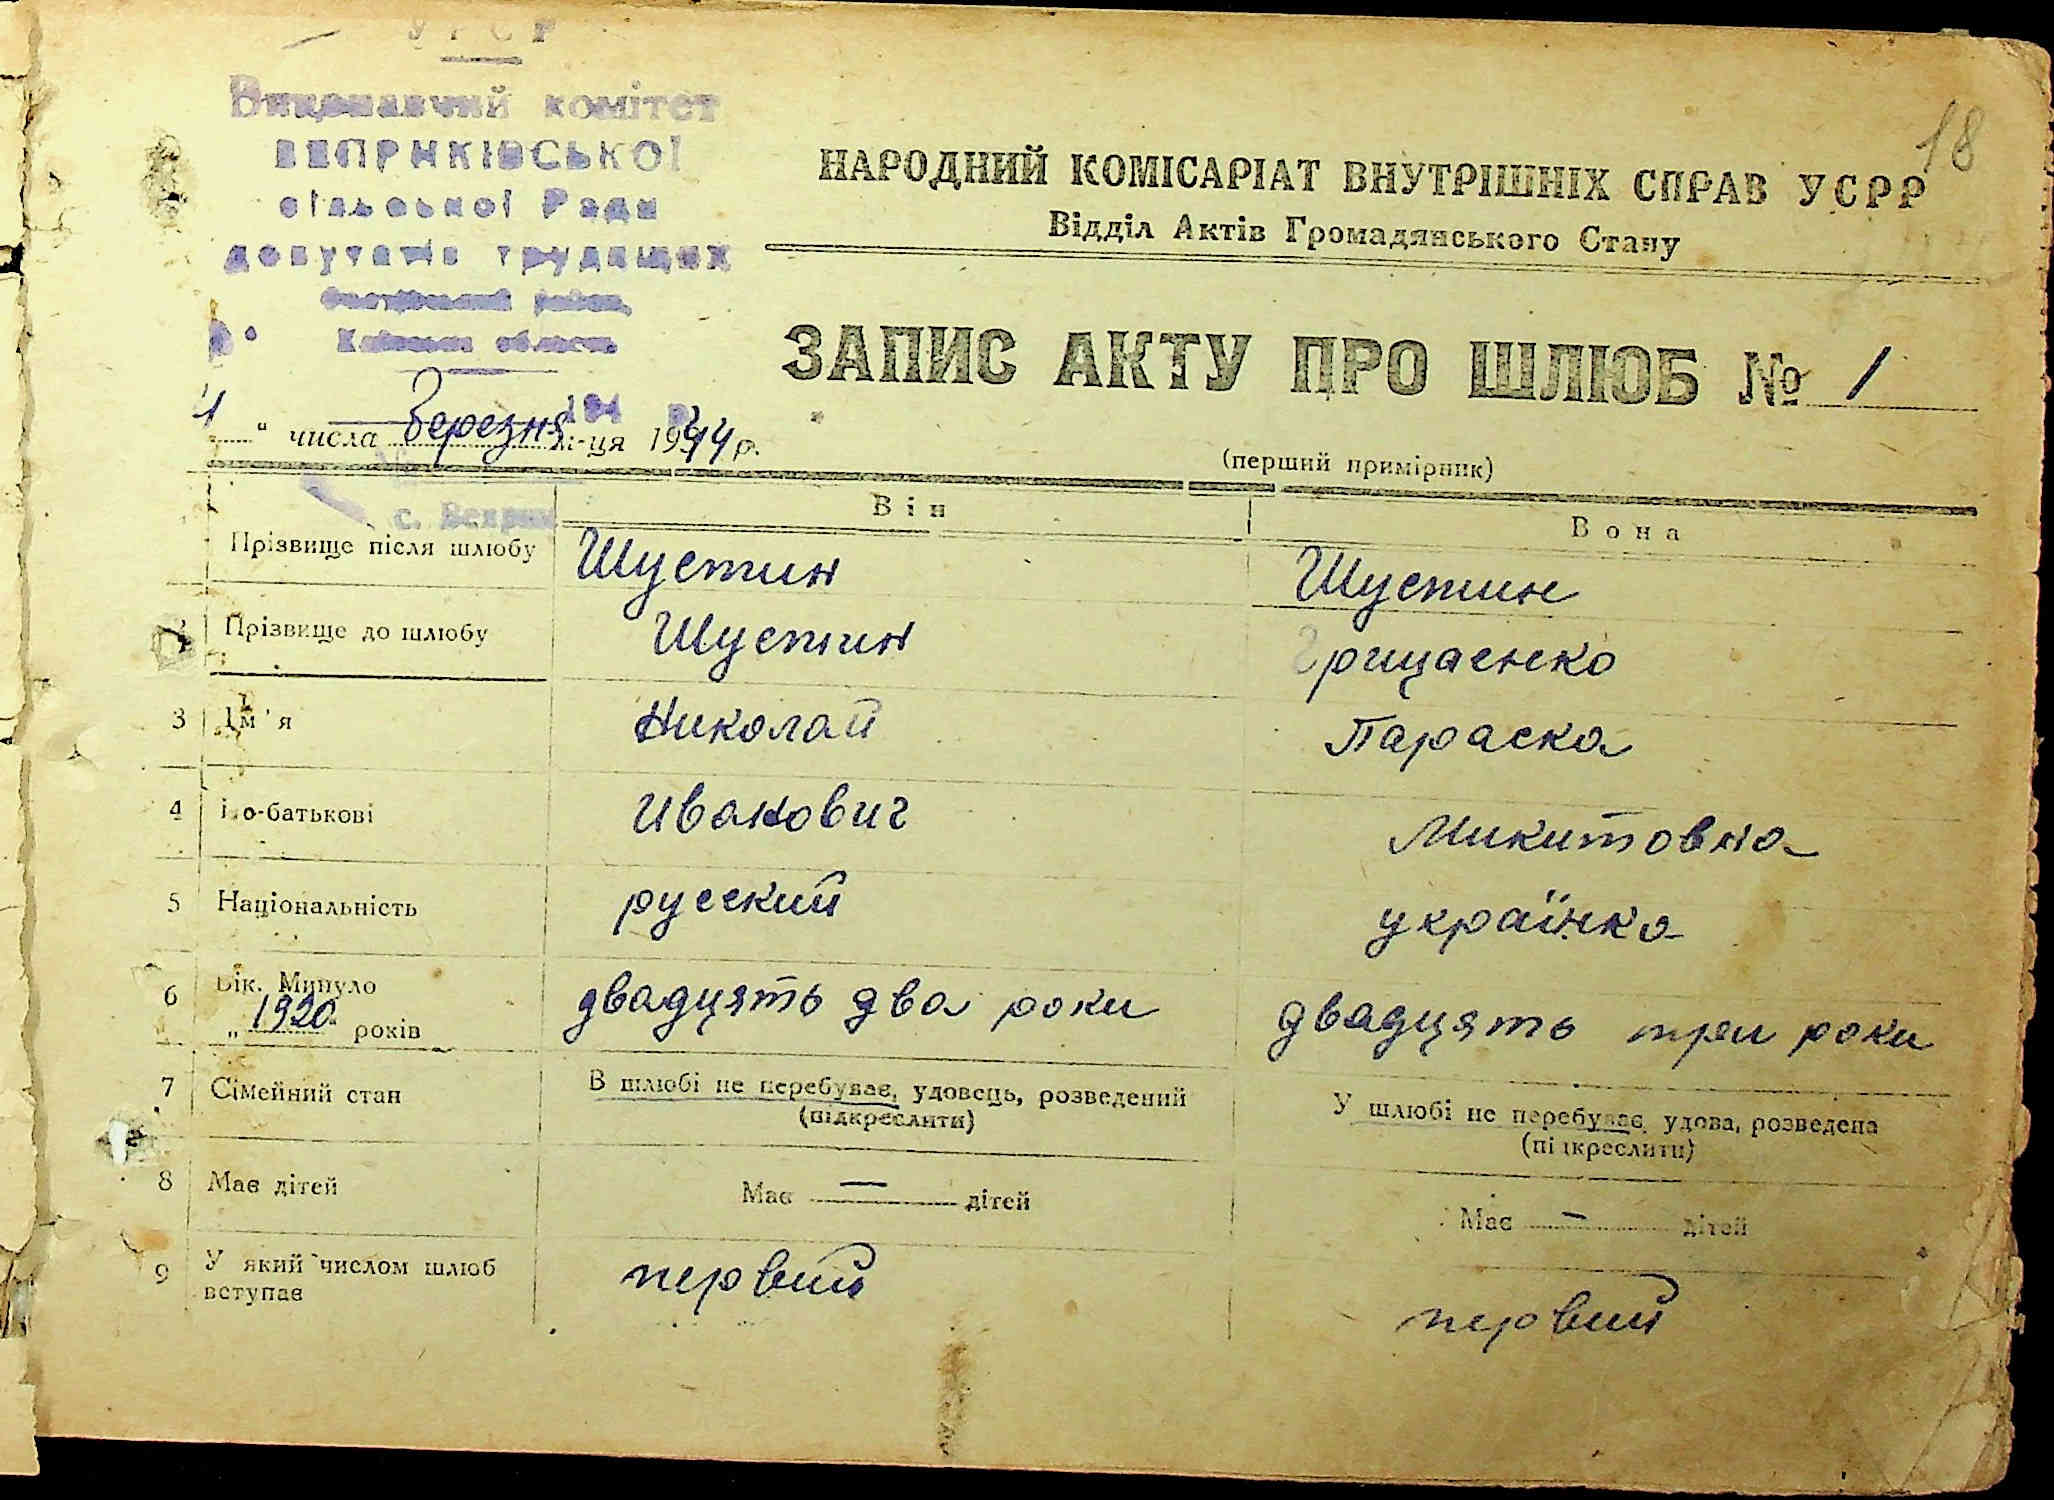 УРСР
Виконавчий комітет
ВЕПРИКІВСЬКОЇ
сільської Ради
депутатів трудящих
Фастівський район,
Київська область
18
НАРОДНИЙ КОМІСАРІАТ ВНУТРІШНІХ СПРАВ УСРР
Відділ Актів Громадянського Стану
ЗАПИС АКТУ ПРО ШЛЮБ № 1
(перший примірник)
194 р.
"1" числа Березня м-ця 1944 р.
с. Веприк
Він Вона
Прізвище після шлюбу Шустин Шустин
2 Прізвище до шлюбу Шустин Грицаенко
3 Ім'я Николай Параска
4 По-батькові Иванович Микитовна
5 Національність русский українка
6 Вік. Минуло двадцять два роки двадцять три роки
„1920" років
7 Сімейний стан В шлюбі не перебуває, удовець, розведений У шлюбі не перебуває, удова, розведена
(підкреслити) (підкреслити)
8 Має дітей Має — дітей Має — дітей
9 У який числом шлюб первий первий
вступає